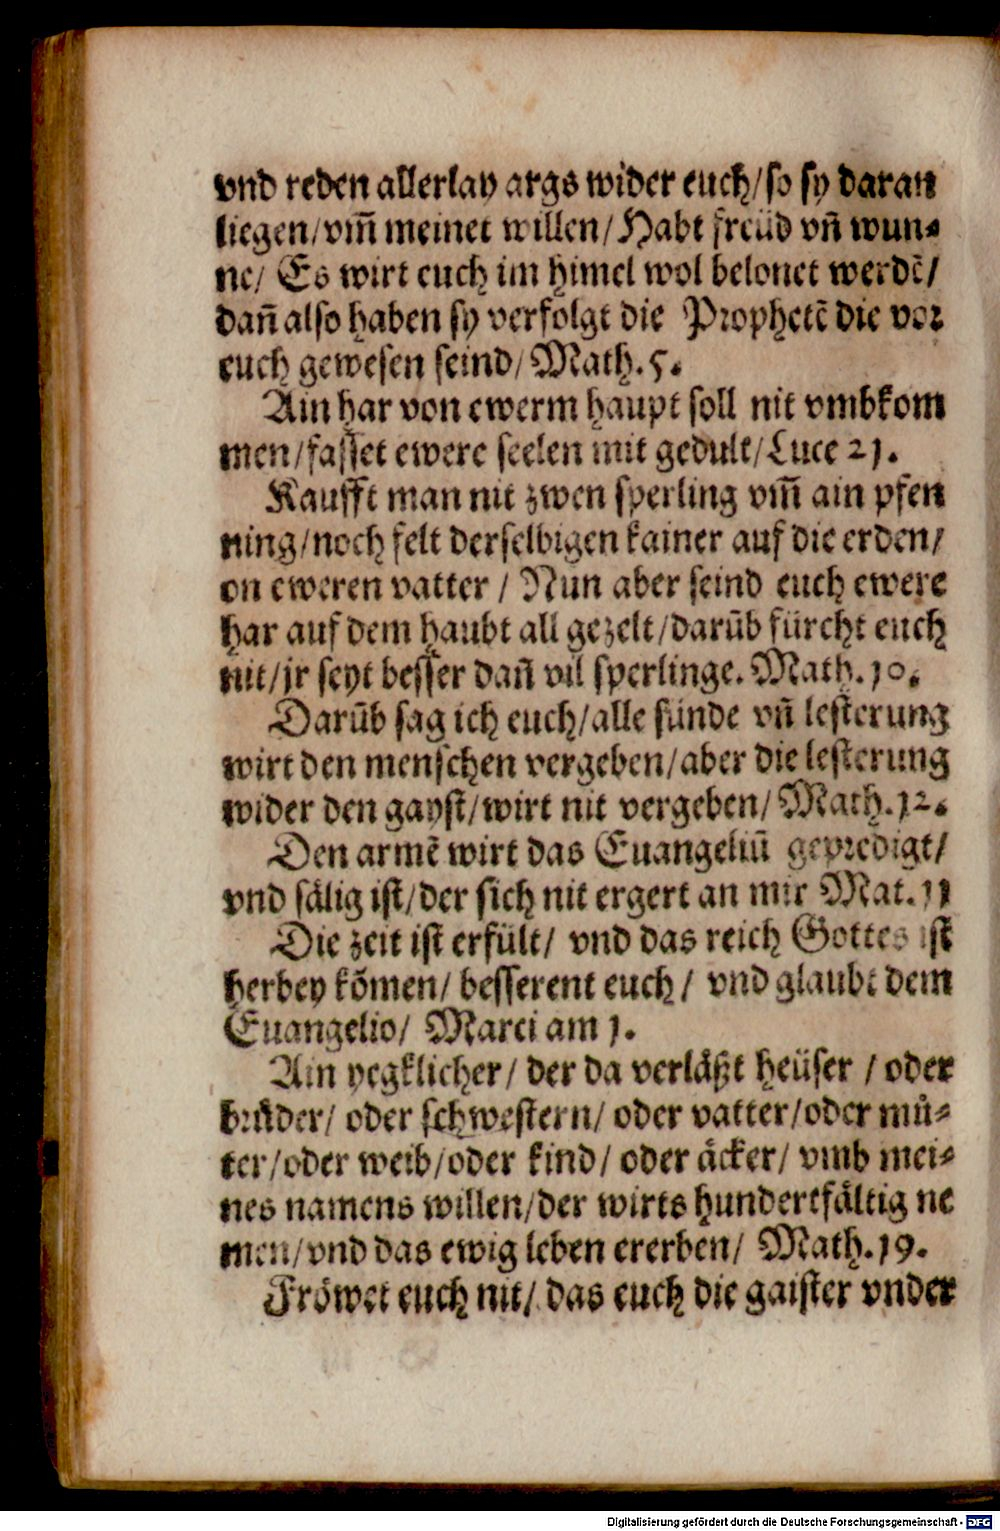 vnd reden allerlay args wider euch/so sy daran
liegen/vm̄ meinet willen/Habt freüd vn̄ wun⸗
ne/ Es wirt euch im himel wol belonet werdē/
dan̄ also haben sy verfolgt die Prophetē die vor
euch gewesen seind/Math.5.
Ain har von ewerm haupt soll nit vmbkom
men/fasset ewere seelen mit gedult/Luce 21.
Kaufft man nit zwen sperling vm̄ ain pfen
ning/noch felt derselbigen kainer auf die erden/
on eweren vatter / Nun aber seind euch ewere
har auf dem haubt all gezelt/darūb fürcht euch
nit/jr seyt besser dan̄ vil sperlinge. Math.10.
Darūb sag ich euch/alle sünde vn̄ lesterung
wirt den menschen vergeben/aber die lesterung
wider den gayst/wirt nit vergeben/ Math.12.
Den armē wirt das Euangeliū gepredigt/
vnd sälig ist/der sich nit ergert an mir Mat.11
Die zeit ist erfült/ vnd das reich Gottes ist
herbey kōmen/ besserent euch/ vnd glaubt dem
Euangelio/ Marci am 1.
Ain yegklicher/ der da verläßt heüser / oder
brůder/ oder schwestern/ oder vatter/oder mů⸗
ter/oder weib/oder kind/ oder äcker/ vmb mei⸗
nes namens willen/der wirts hundertfältig ne
men/vnd das ewig leben ererben/ Math.19.
Fröwet euch nit/ das euch die gaister vnder
Digitalisierung gefördert durch die Deutsche Forschungsgemeinschaft - DFG